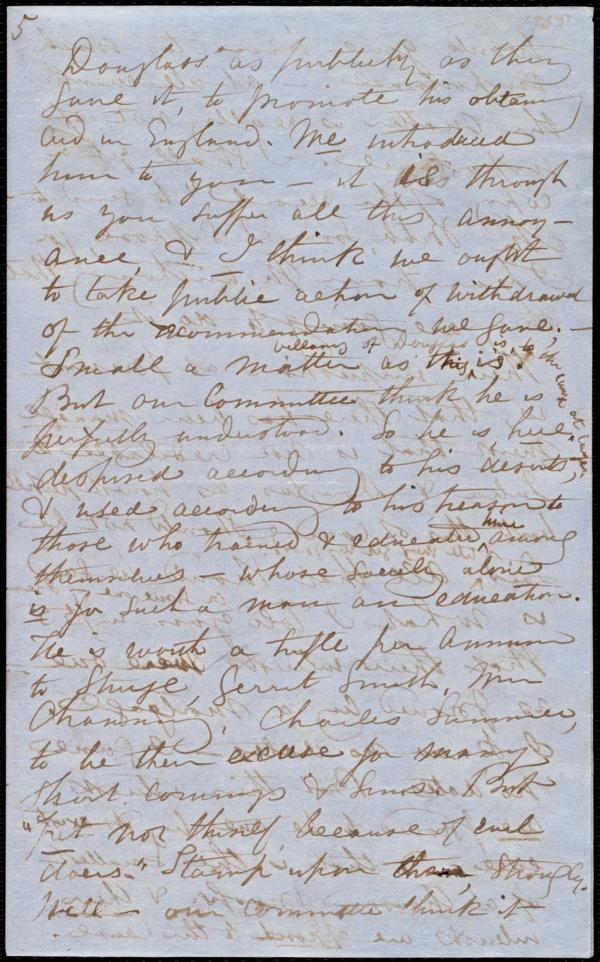 5
Douglass as publickly as they
gave it, to promote his obtaining
aid in England. We introduced
him to you — it is through
us you suffer all this annoy-
ance, & I think we ought
to take public action of withdrawal
of the recommendation we gave, —
Small a matter as this villainy of Douglass is, to the cause at large.
But our Committee think he is
perfectly understood. So he is, here,
despised according to his deserts,
& used according to his treason to
those who trained & educated him among
themselves — whose society alone
is for such a man an education.
He is worth a trifle per Annum
to Sturge, Gerrit Smith, Mr
Channing, Charles Sumner,
to be their excuse for many
short comings & sins. But
"Fret not thyself because of evil
doers." Stamp upon them strongly.
Well — our Committee think it